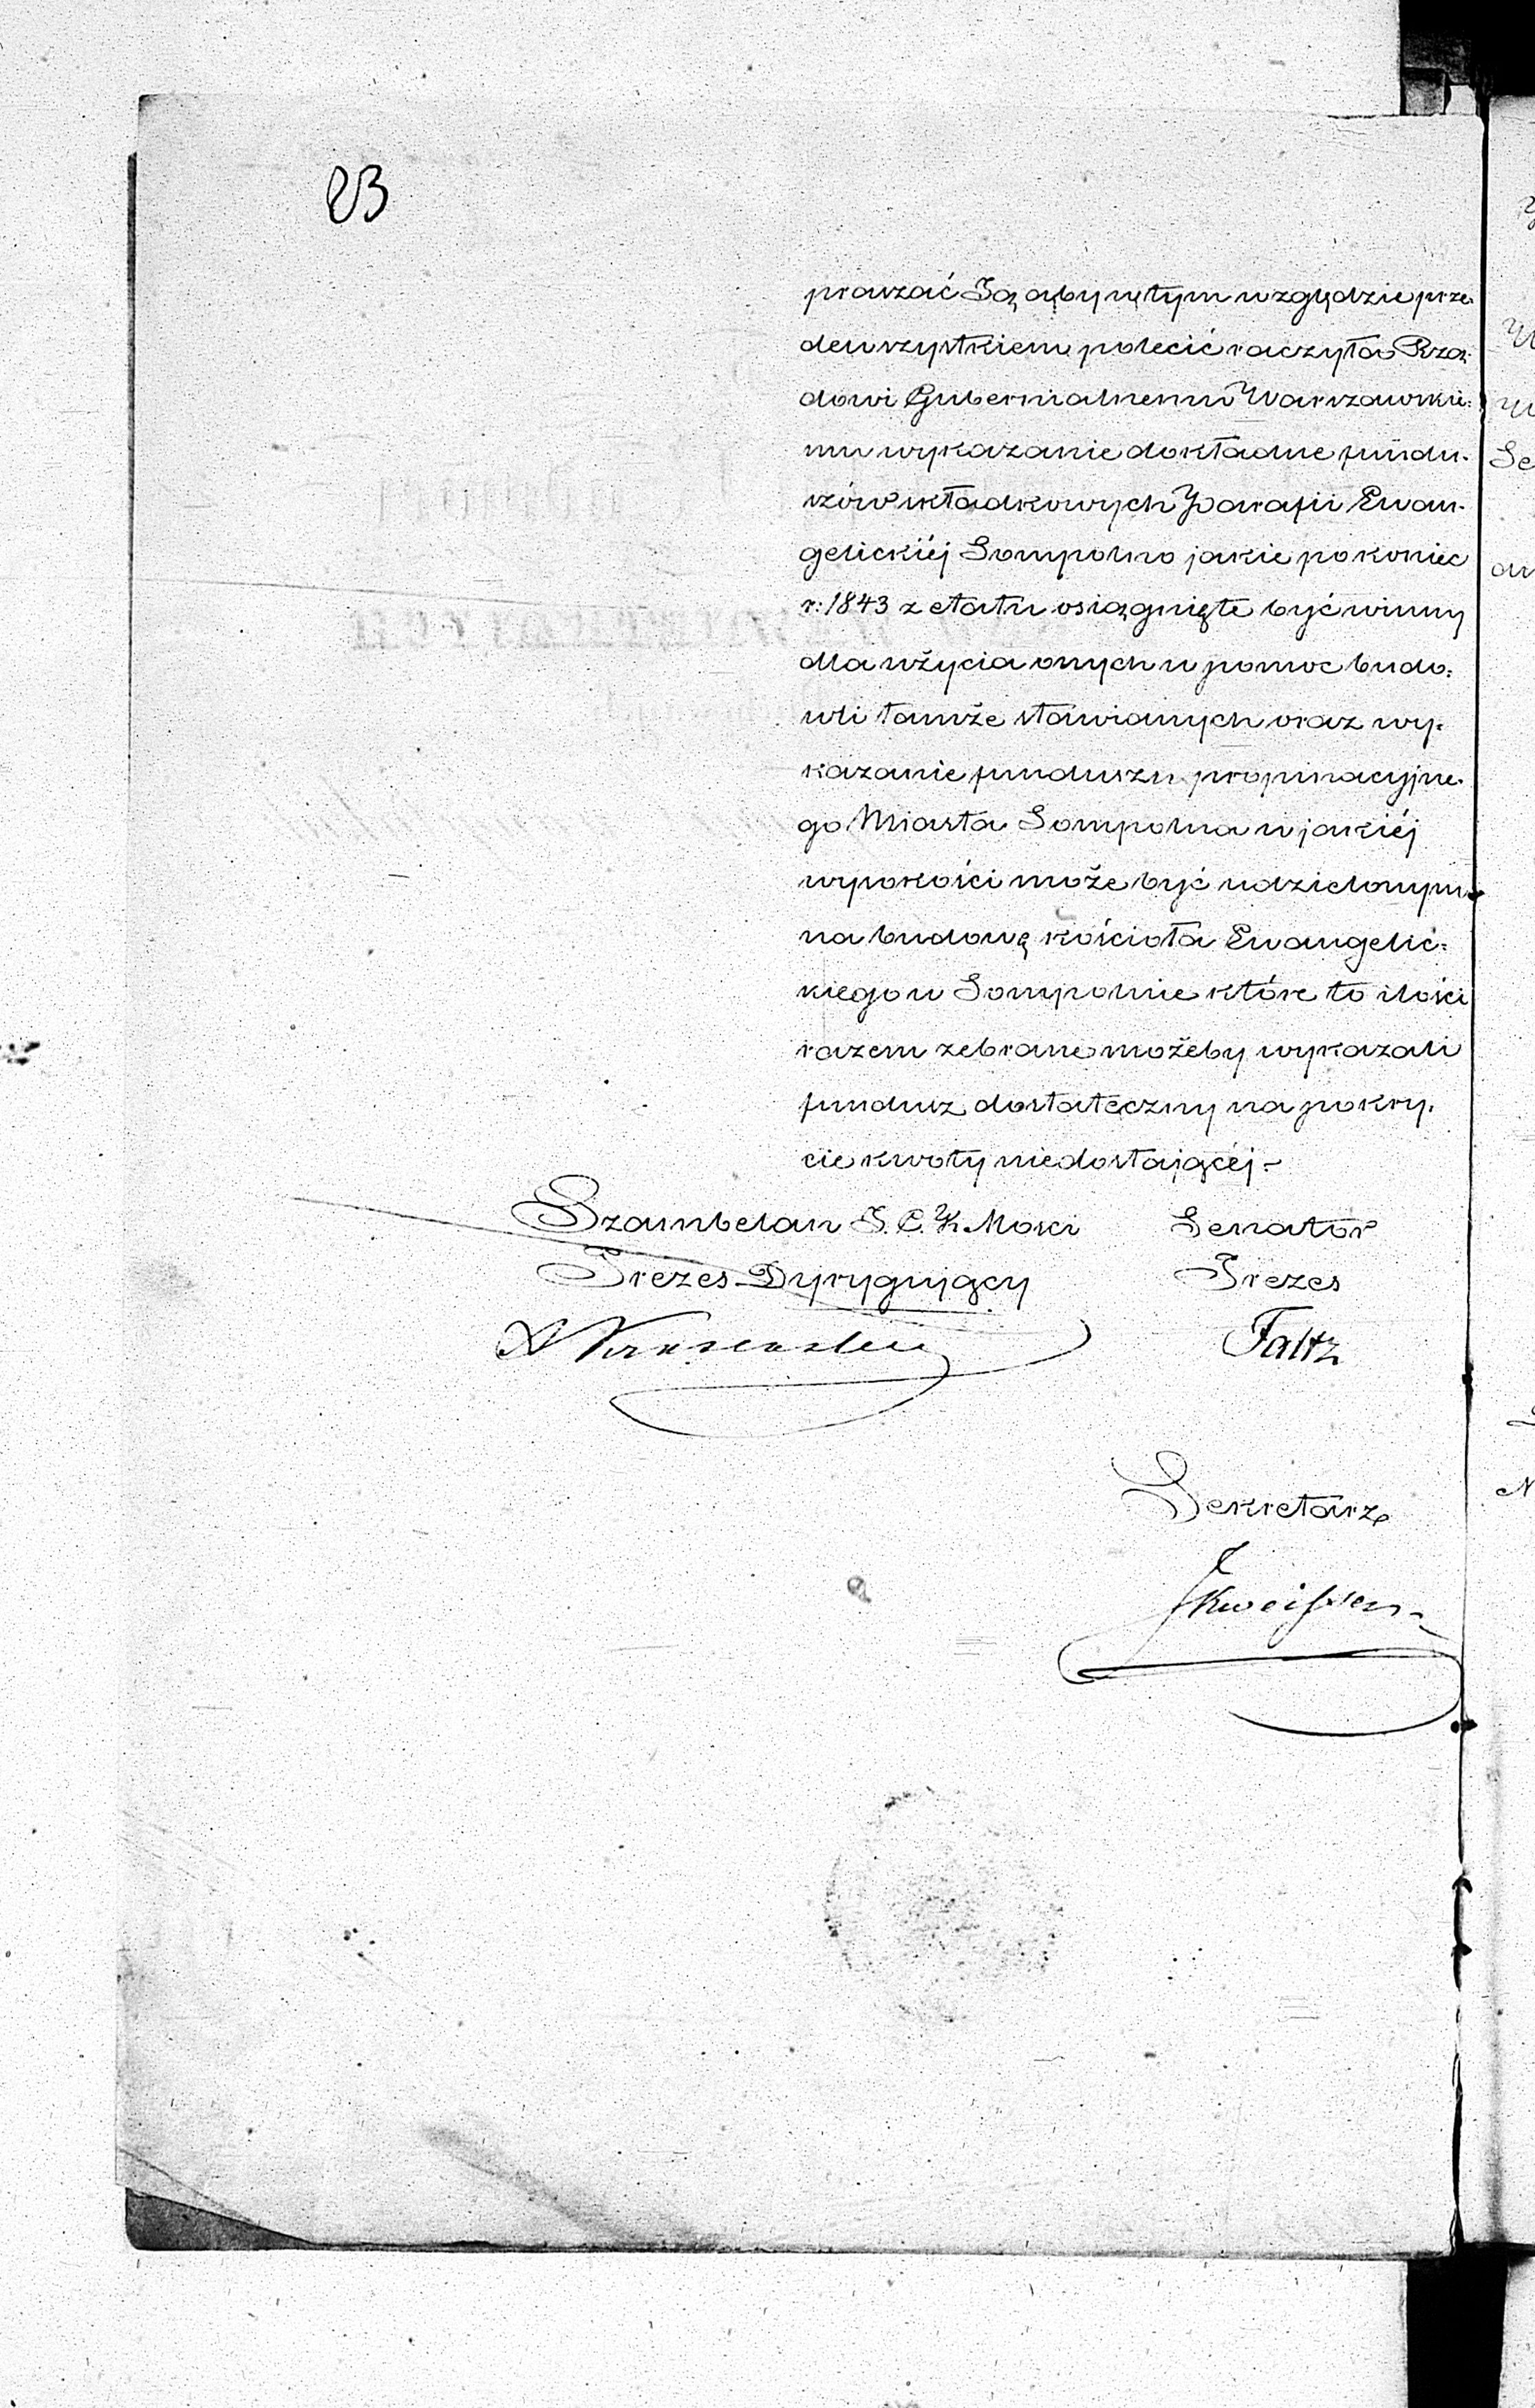 83
praszać Ją aby w tym względzie prze-
dewszystkiem polecić raczyła Rzą-
dowi Gubernialnemu Warszawskie-
mu wykazanie dokładne fundu-
szów składkowych Parafii Ewan-
gelickiéj Sompolno jakie po koniec
r: 1843 z etatu osiągnięte być winny
dla użycia onych w pomoc budo-
wli tamże stawianych oraz wy-
kazanie funduszu propinacyjne-
go Miasta Sompolna w jakiéj
wysokości może być udzielonym
na budowę kościoła Ewangelic-
kiego w Sompolnie które to ilości
razem zebrane możeby wykazali
fundusz dostateczny na pokry-
cie kwoty niedostającéj -
Szambelan J. C. K. Mości Senator
Prezes Dyrygujący Prezes
Faltz
Sekretarz